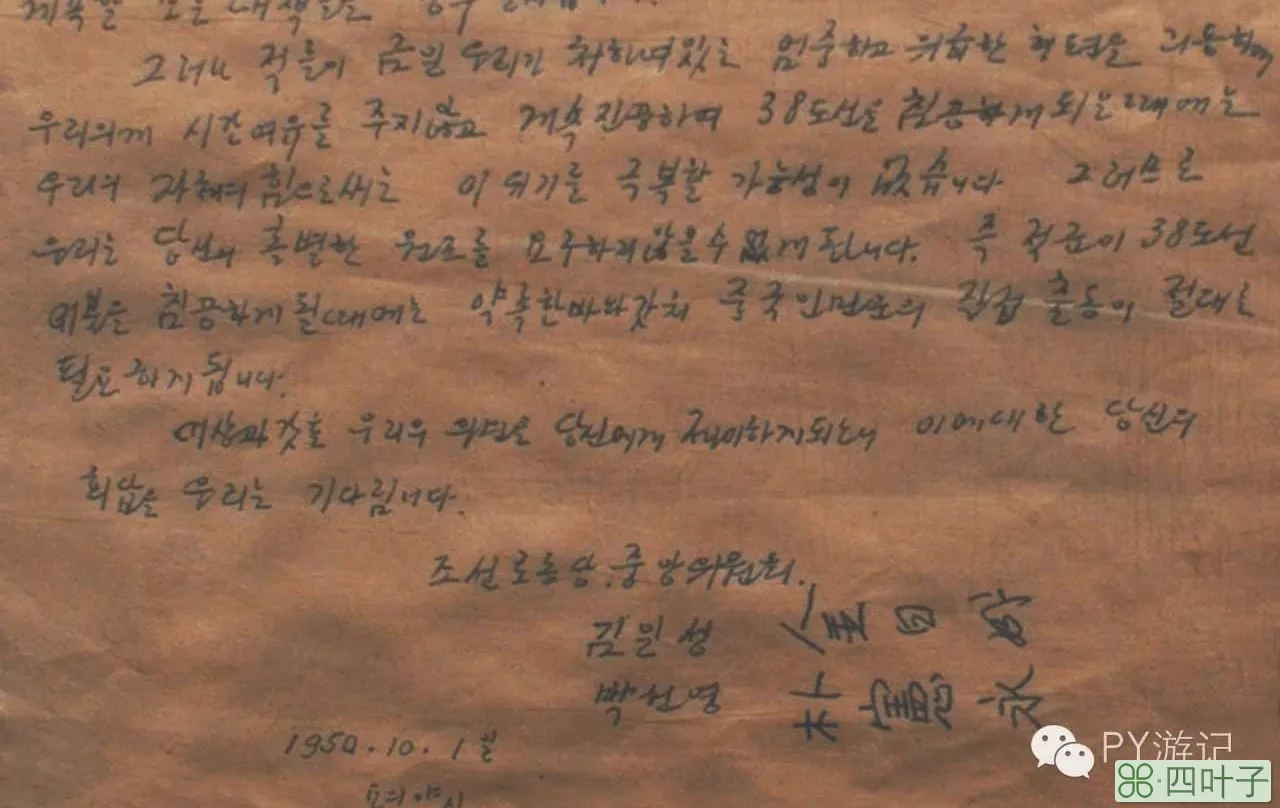 계속할 모든 대책들을
그러나 적들이 금일 우리가 처하여있는 엄중하고 위급한 형편을 리용하여
우리의게 시간여유를 주지않고 계속진공하여 38도선을 침공하게되는때에는
우리의 자체의 힘으로써는 이 위기를 극복할 가능성이 없습니다 그러므로
우리는 당신의 특별한 원조를 요구하지않을수 없게 된니다. 즉 적군이 38도선
이북을 침공하게 될때에는 약속한바와갓치 중국인민군의 직접 출동이 절대로
필요하게 됩니다.
이상과갓흔 우리의 의견을 당신에게 제의하게되는데 이에대한 당신의
회답을 우리는 기다립니다.
조선로동당.중앙위원회.
김일성 金日成
박헌영 朴憲永
1950.10.1일
평양시
PY游记
四叶子